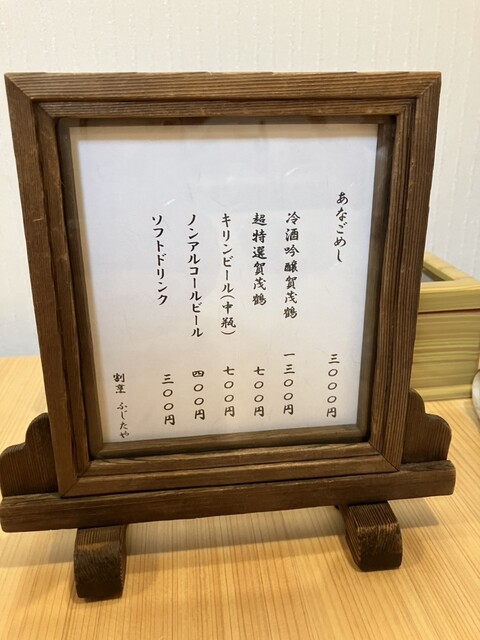 あなごめし 三〇〇〇円
冷酒吟醸賀茂鶴 一三〇〇円
超特選賀茂鶴 七〇〇円
キリンビール(中瓶) 七〇〇円
ノンアルコールビール 四〇〇円
ソフトドリンク 三〇〇円
割烹 ふじたや